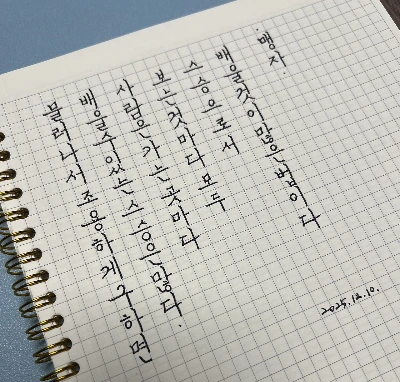 물러나서 조용하게 구하면
배울 수 있는 스승은 많다.
사람은 가는 곳마다
보는 것마다 모두
스승으로서
배울것이 많은 법이다
·맹자·
2025.12.10.